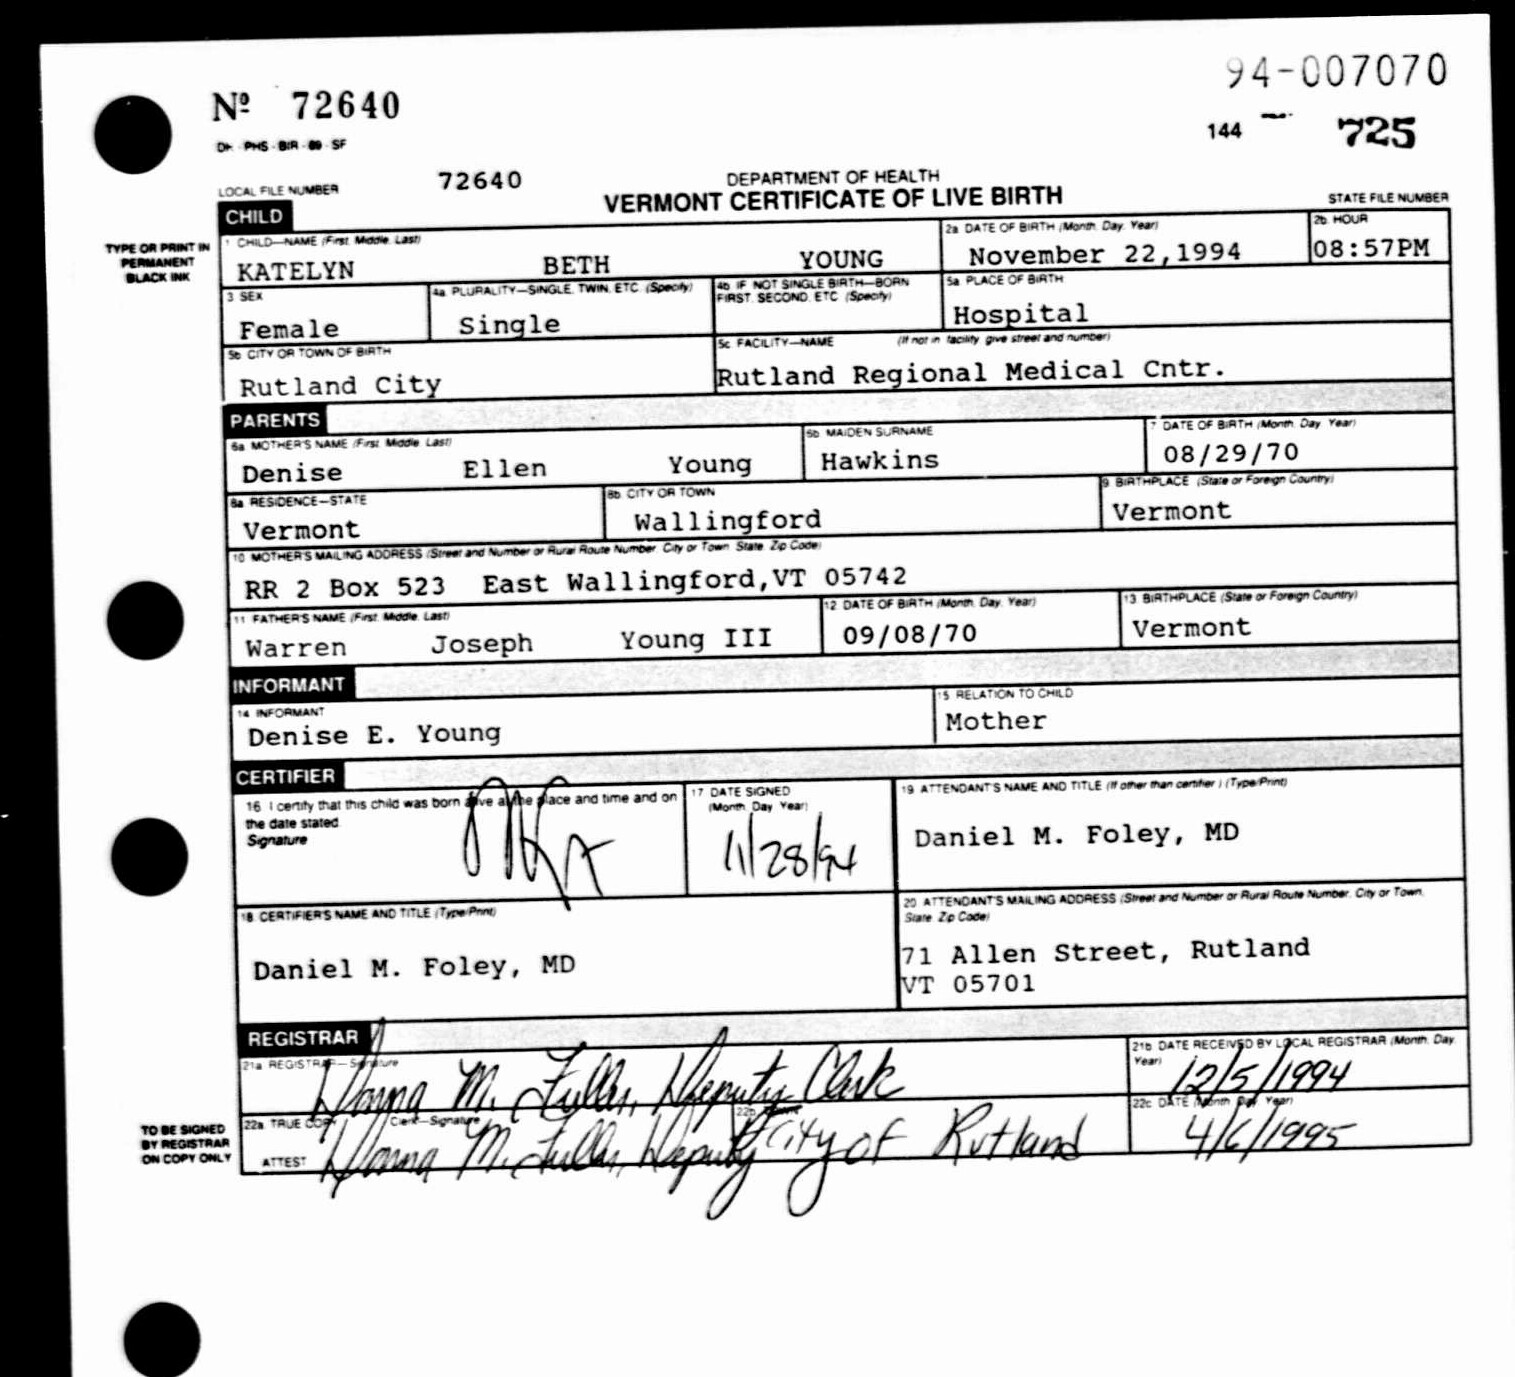 94-007070
Nº 72640
144 725
DH - PHS - BIR - 89 - SF
LOCAL FILE NUMBER 72640
DEPARTMENT OF HEALTH
VERMONT CERTIFICATE OF LIVE BIRTH
STATE FILE NUMBER
CHILD
TYPE OR PRINT IN
PERMANENT
BLACK INK
1 CHILD—NAME (First, Middle, Last)
KATELYN BETH YOUNG
2a DATE OF BIRTH (Month, Day, Year)
November 22,1994
2b HOUR
08:57PM
3 SEX
Female
4a PLURALITY—SINGLE, TWIN, ETC. (Specify)
Single
4b IF NOT SINGLE BIRTH—BORN
FIRST, SECOND, ETC (Specify)
5a PLACE OF BIRTH
Hospital
5b CITY OR TOWN OF BIRTH
Rutland City
5c FACILITY—NAME (If not in facility give street and number)
Rutland Regional Medical Cntr.
PARENTS
6a MOTHER'S NAME (First Middle Last)
Denise Ellen Young
6b MAIDEN SURNAME
Hawkins
7 DATE OF BIRTH (Month, Day, Year)
08/29/70
8a RESIDENCE—STATE
Vermont
8b CITY OR TOWN
Wallingford
9 BIRTHPLACE (State or Foreign Country)
Vermont
10 MOTHER'S MAILING ADDRESS (Street and Number or Rural Route Number, City or Town, State, Zip Code)
RR 2 Box 523 East Wallingford,VT 05742
11 FATHER'S NAME (First, Middle, Last)
Warren Joseph Young III
12 DATE OF BIRTH (Month, Day, Year)
09/08/70
13 BIRTHPLACE (State or Foreign Country)
Vermont
INFORMANT
14 INFORMANT
Denise E. Young
15 RELATION TO CHILD
Mother
CERTIFIER
16 I certify that this child was born alive at the place and time and on
the date stated
Signature
17 DATE SIGNED
(Month, Day, Year)
11/28/94
19 ATTENDANT'S NAME AND TITLE (If other than certifier) (Type/Print)
Daniel M. Foley, MD
18 CERTIFIER'S NAME AND TITLE (Type/Print)
Daniel M. Foley, MD
20 ATTENDANT'S MAILING ADDRESS (Street and Number or Rural Route Number, City or Town,
State, Zip Code)
71 Allen Street, Rutland
VT 05701
REGISTRAR
21a REGISTRAR—Signature
Donna M. Fuller, Deputy Clerk
21b DATE RECEIVED BY LOCAL REGISTRAR (Month, Day,
Year)
12/5/1994
TO BE SIGNED
BY REGISTRAR
ON COPY ONLY
22a TRUE COPY Clerk—Signature
ATTEST Donna M. Fuller, Deputy
22b
City of Rutland
22c DATE (Month, Day, Year)
4/6/1995